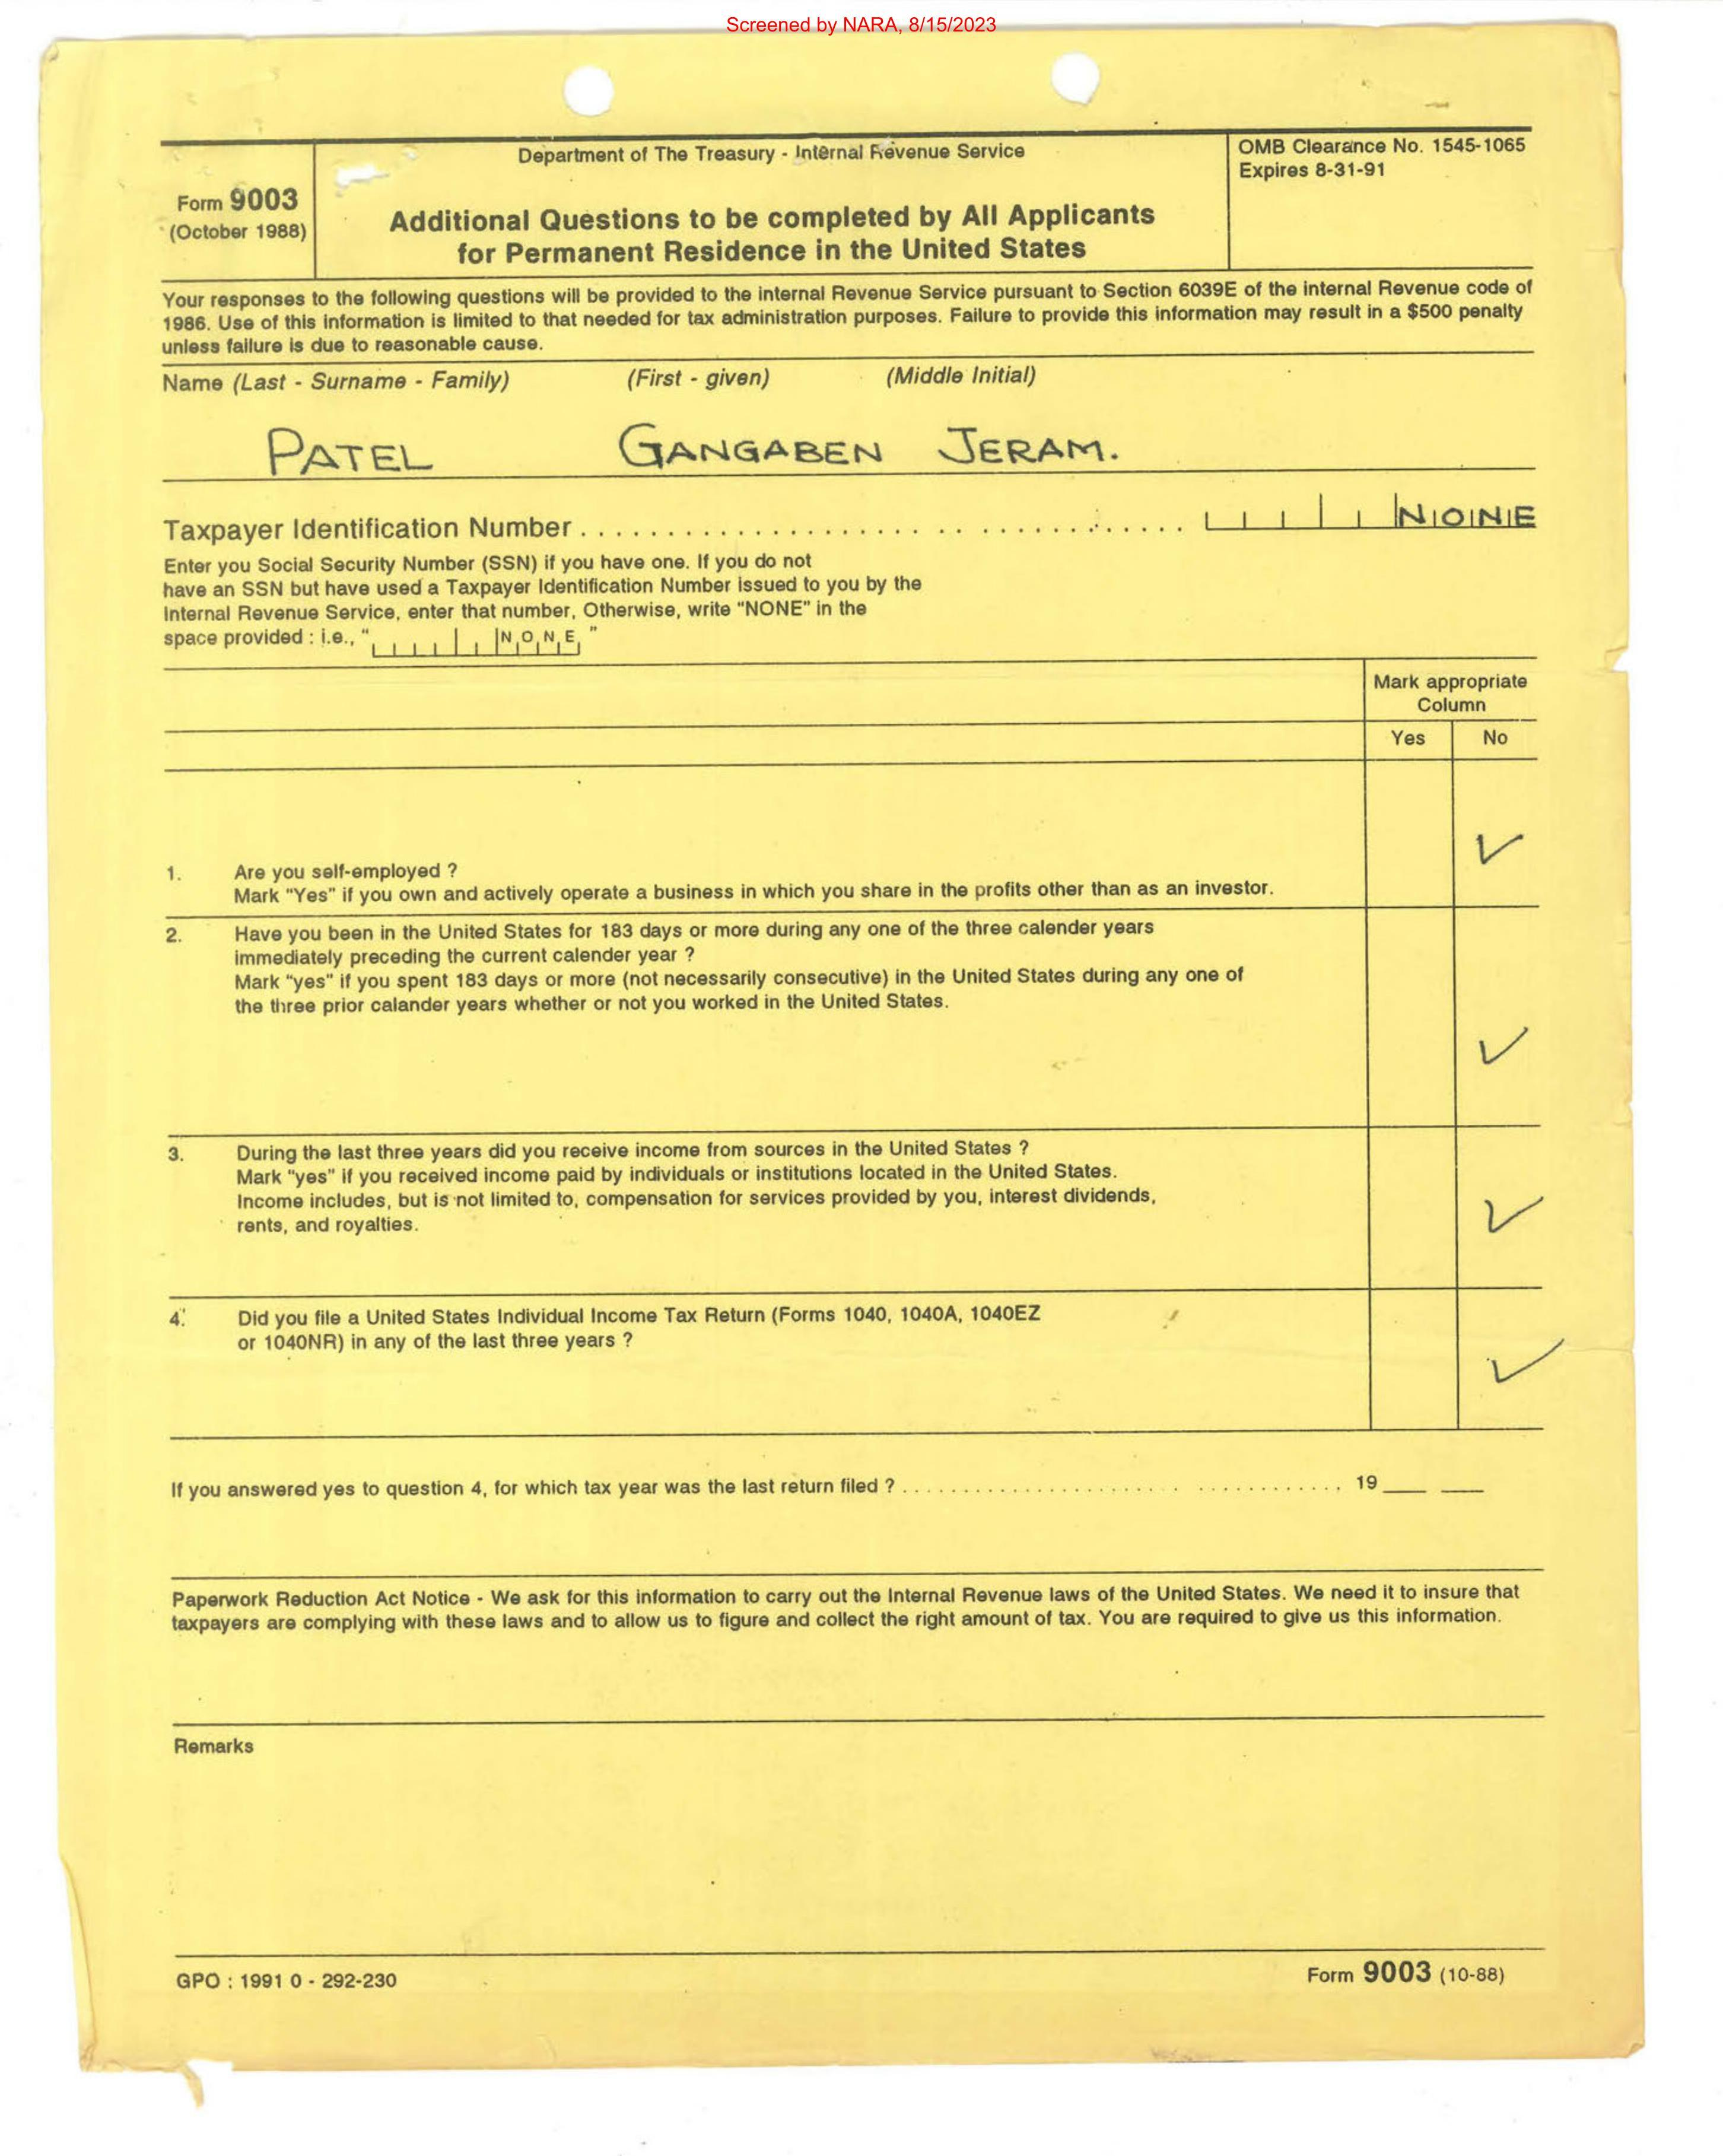 Screened by NARA, 8/15/2023
Form 9003
(October 1988)
Department of The Treasury - Internal Revenue Service
Additional Questions to be completed by All Applicants
for Permanent Residence in the United States
OMB Clearance No. 1545-1065
Expires 8-31-91
Your responses to the following questions will be provided to the internal Revenue Service pursuant to Section 6039E of the internal Revenue code of
1986. Use of this information is limited to that needed for tax administration purposes. Failure to provide this information may result in a $500 penalty
unless failure is due to reasonable cause.
Name (Last - Surname - Family) (First - given) (Middle Initial)
PATEL GANGABEN JERAM.
Taxpayer Identification Number . . . . . . . . . . . . . . . . . . . . . . . . . . . . . . . . . . . . . . . . NONE
Enter you Social Security Number (SSN) if you have one. If you do not
have an SSN but have used a Taxpayer Identification Number issued to you by the
Internal Revenue Service, enter that number, Otherwise, write "NONE" in the
space provided : i.e., " NONE "
Mark appropriate
Column
Yes No
1. Are you self-employed ?
Mark "Yes" if you own and actively operate a business in which you share in the profits other than as an investor.
2. Have you been in the United States for 183 days or more during any one of the three calender years
immediately preceding the current calender year ?
Mark "yes" if you spent 183 days or more (not necessarily consecutive) in the United States during any one of
the three prior calander years whether or not you worked in the United States.
3. During the last three years did you receive income from sources in the United States ?
Mark "yes" if you received income paid by individuals or institutions located in the United States.
Income includes, but is not limited to, compensation for services provided by you, interest dividends,
rents, and royalties.
4. Did you file a United States Individual Income Tax Return (Forms 1040, 1040A, 1040EZ
or 1040NR) in any of the last three years ?
If you answered yes to question 4, for which tax year was the last return filed ? . . . . . . . . . . . . . . . . . . . . . . . . . . . . . . . . . . . . 19 ___ ___
Paperwork Reduction Act Notice - We ask for this information to carry out the Internal Revenue laws of the United States. We need it to insure that
taxpayers are complying with these laws and to allow us to figure and collect the right amount of tax. You are required to give us this information.
Remarks
GPO : 1991 0 - 292-230
Form 9003 (10-88)